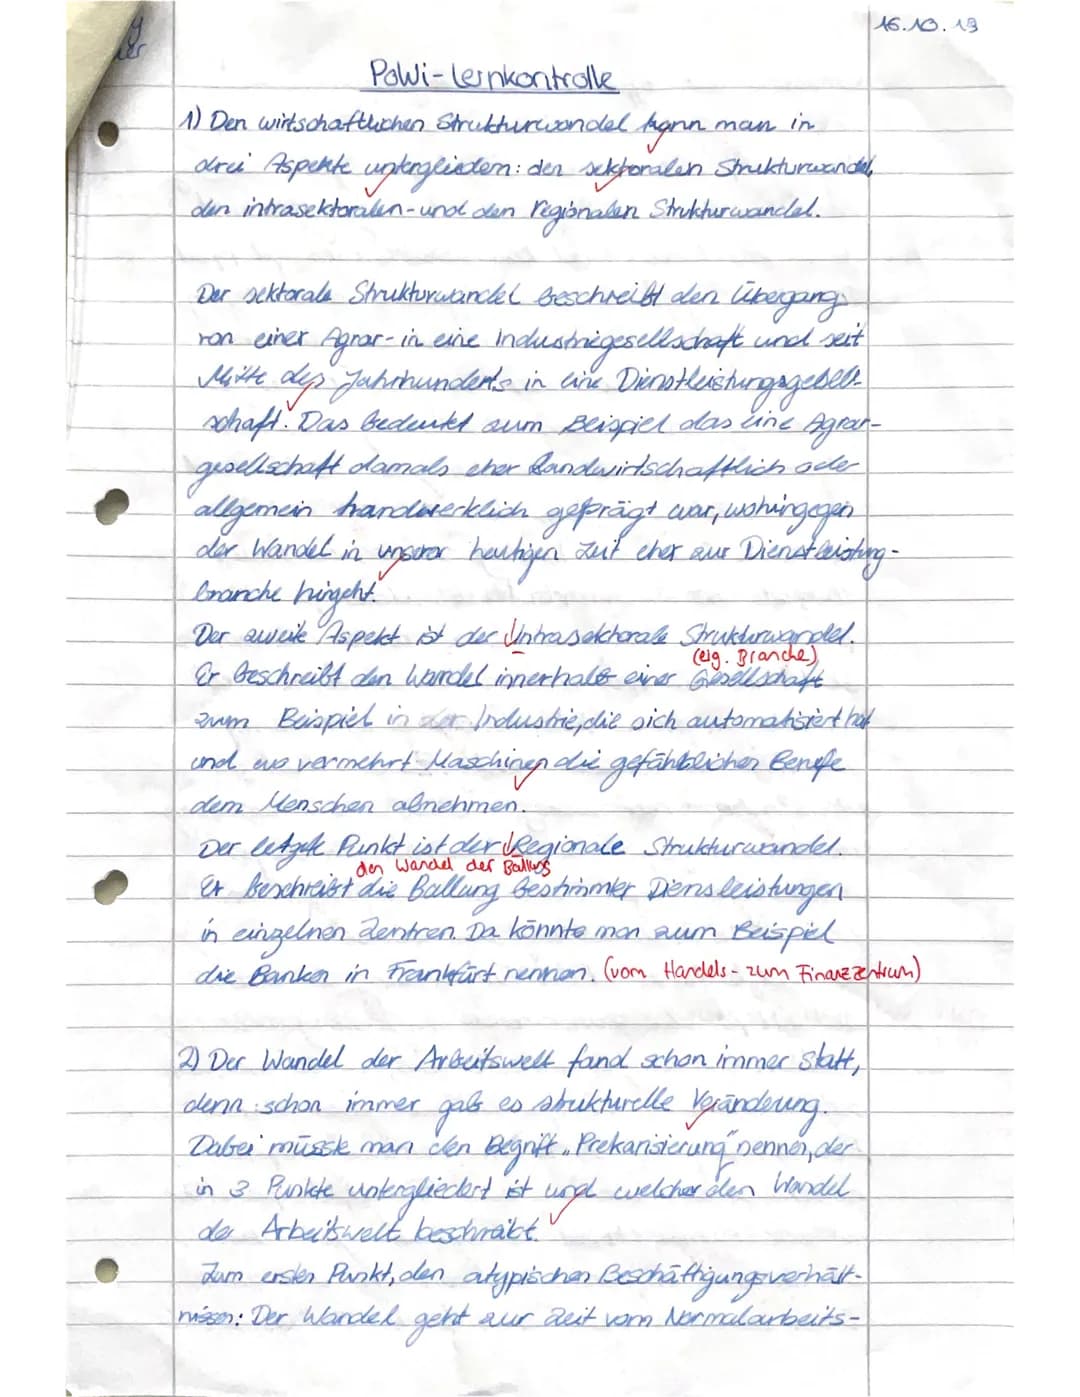 16.10.19
PoWi-Lernkontrolle
1) Den wirtschaftlichen Strukturwandel kann man in
drei Aspekte untergliedern: den sektoralen Strukturwandel,
den intrasektoralen-und den regionalen Strukturwandel.
Der sektorale Strukturwandel beschreibt den Übergang
von einer Agrar-in eine Industriegesellschaft und seit
Mitte des Jahrhunderts in eine Dienstleistungsgesell-
schaft. Das bedeutet zum Beispiel das eine Agrar-
gesellschaft damals eher landwirtschaftlich oder
allgemein handwerklich geprägt war, wohingegen
der Wandel in unserer heutigen Zeit eher zur Dienstleistung-
branche hingeht.
Der zweite Aspekt ist der Intrasektorale Strukturwandel.
(eig. Branche)
Er beschreibt den Wandel innerhalb einer Gesellschaft
zum Beispiel in der Industrie, die sich automatisiert hat
und wo vermehrt Maschinen die gefährlichen Berufe
dem Menschen abnehmen.
Der letzte Punkt ist der Regionale Strukturwandel.
den Wandel der Ballung
Er beschreibt die Ballung bestimmter Diensleistungen
in einzelnen Zentren. Da könnte man zum Beispiel
die Banken in Frankfurt nennen. (vom Handels- zum Finanzzentrum)
2) Der Wandel der Arbeitswelt fand schon immer statt,
denn schon immer gab es strukturelle Veränderung.
Dabei müsste man den Begriff „Prekarisierung" nennen, der
in 3 Punkte untergliedert ist und welcher den Wandel
der Arbeitswelt beschreibt.
Zum ersten Punkt, den atypischen Beschäftigungsverhält-
nissen: Der Wandel geht zur Zeit vom Normalarbeits-